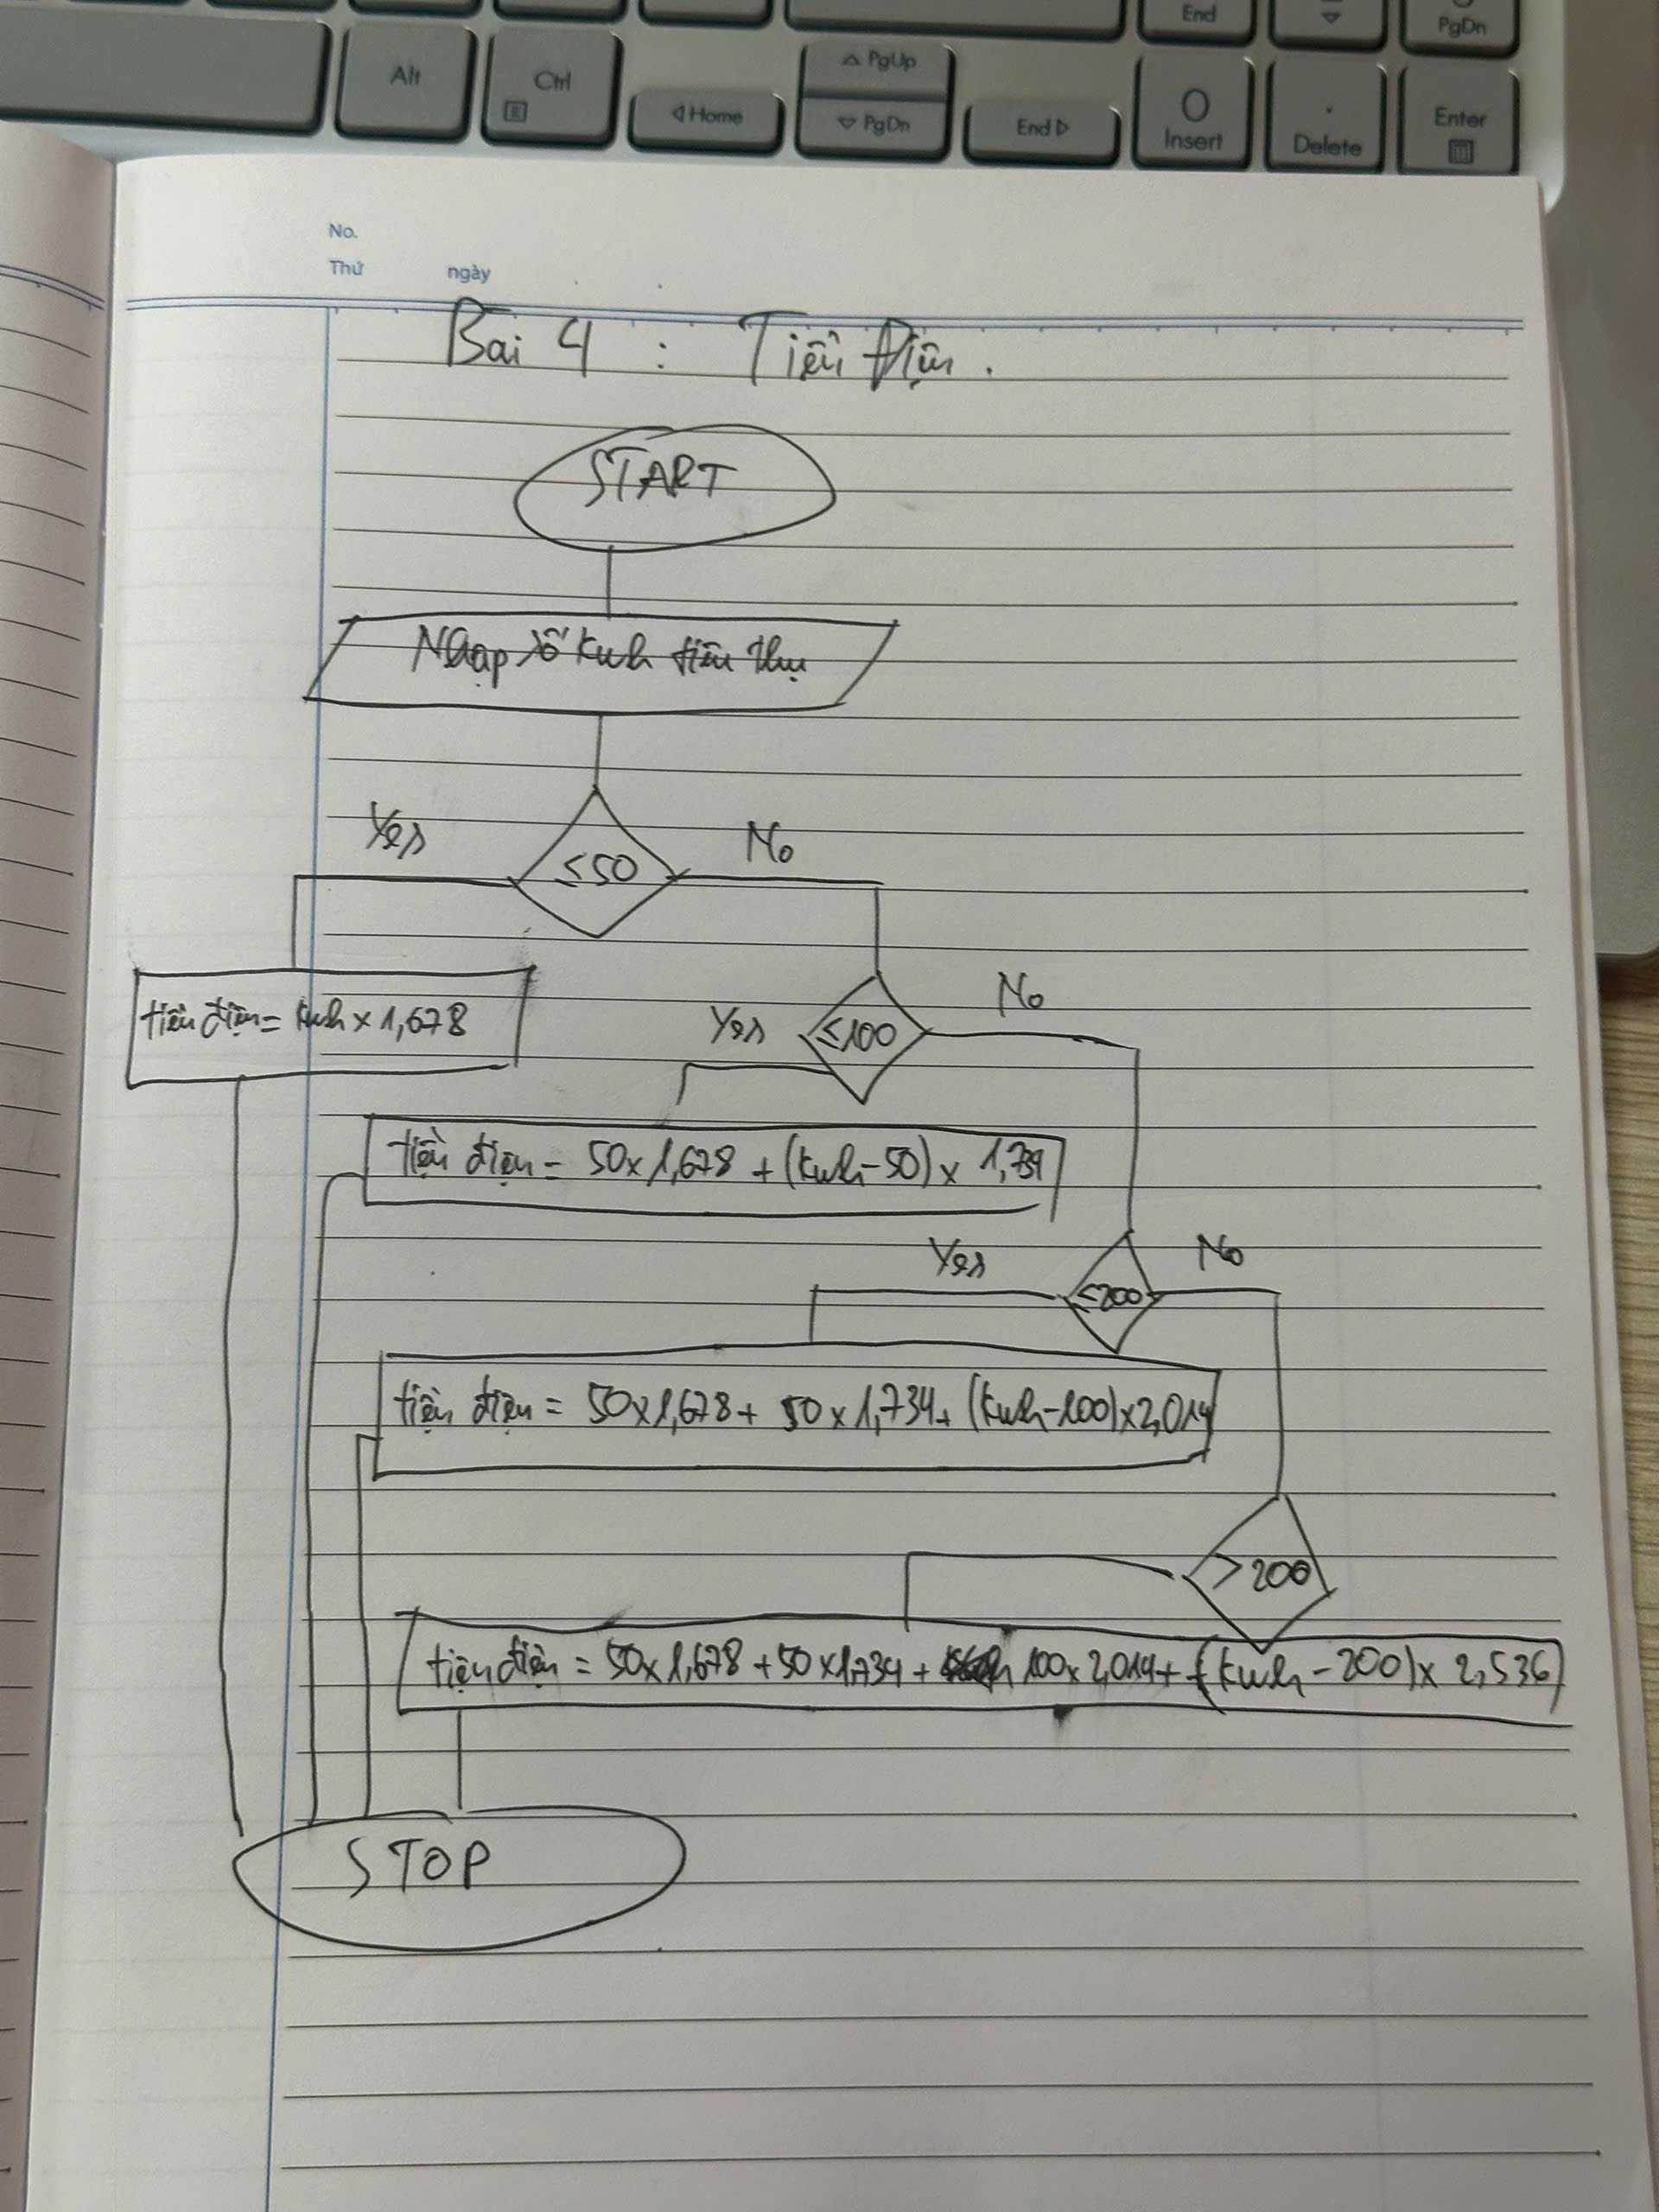 End
PgDn
Alt
Ctrl
Home
PgUp
PgDn
End
Insert
Delete
Enter
No.
Thứ ngày
Bai 4 : Tiền Điện.
START
Nhập số kwh tiêu thụ
Yes
≤50
No
tiền điện = kwh x 1,678
Yes
≤100
No
tiền điện = 50x1,678 + (kwh-50) x 1,734
Yes
≤200
No
tiền điện = 50x1,678 + 50x1,734 + (kwh-100)x2,014
>200
tiền điện = 50x1,678 + 50x1,734 + 100x2,014 + (kwh-200)x 2,536
STOP